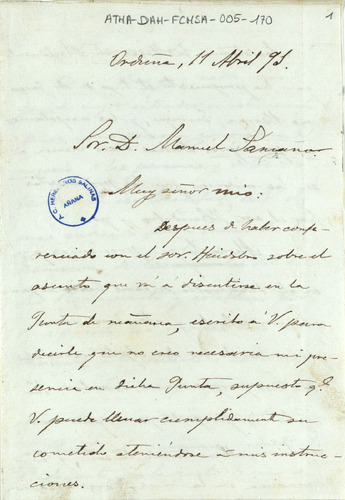 ATHA-DAH-FCHSA-005-170
1
Orduña, 11 Abril 93.
Sor. D. Manuel
Muy señor mio:
SALINAS
AÑANA
Despues de haber confe-
renciado con el sor. sobre el
asunto que vá a discutirse en la
Junta de mañana, escribo á V. para
decirle que no creo necesaria mi pre-
sencia en dicha Junta, supuesto q.e
V. puede llenar cumplidamente su
cometido ateniéndose á mis instruc-
ciones.